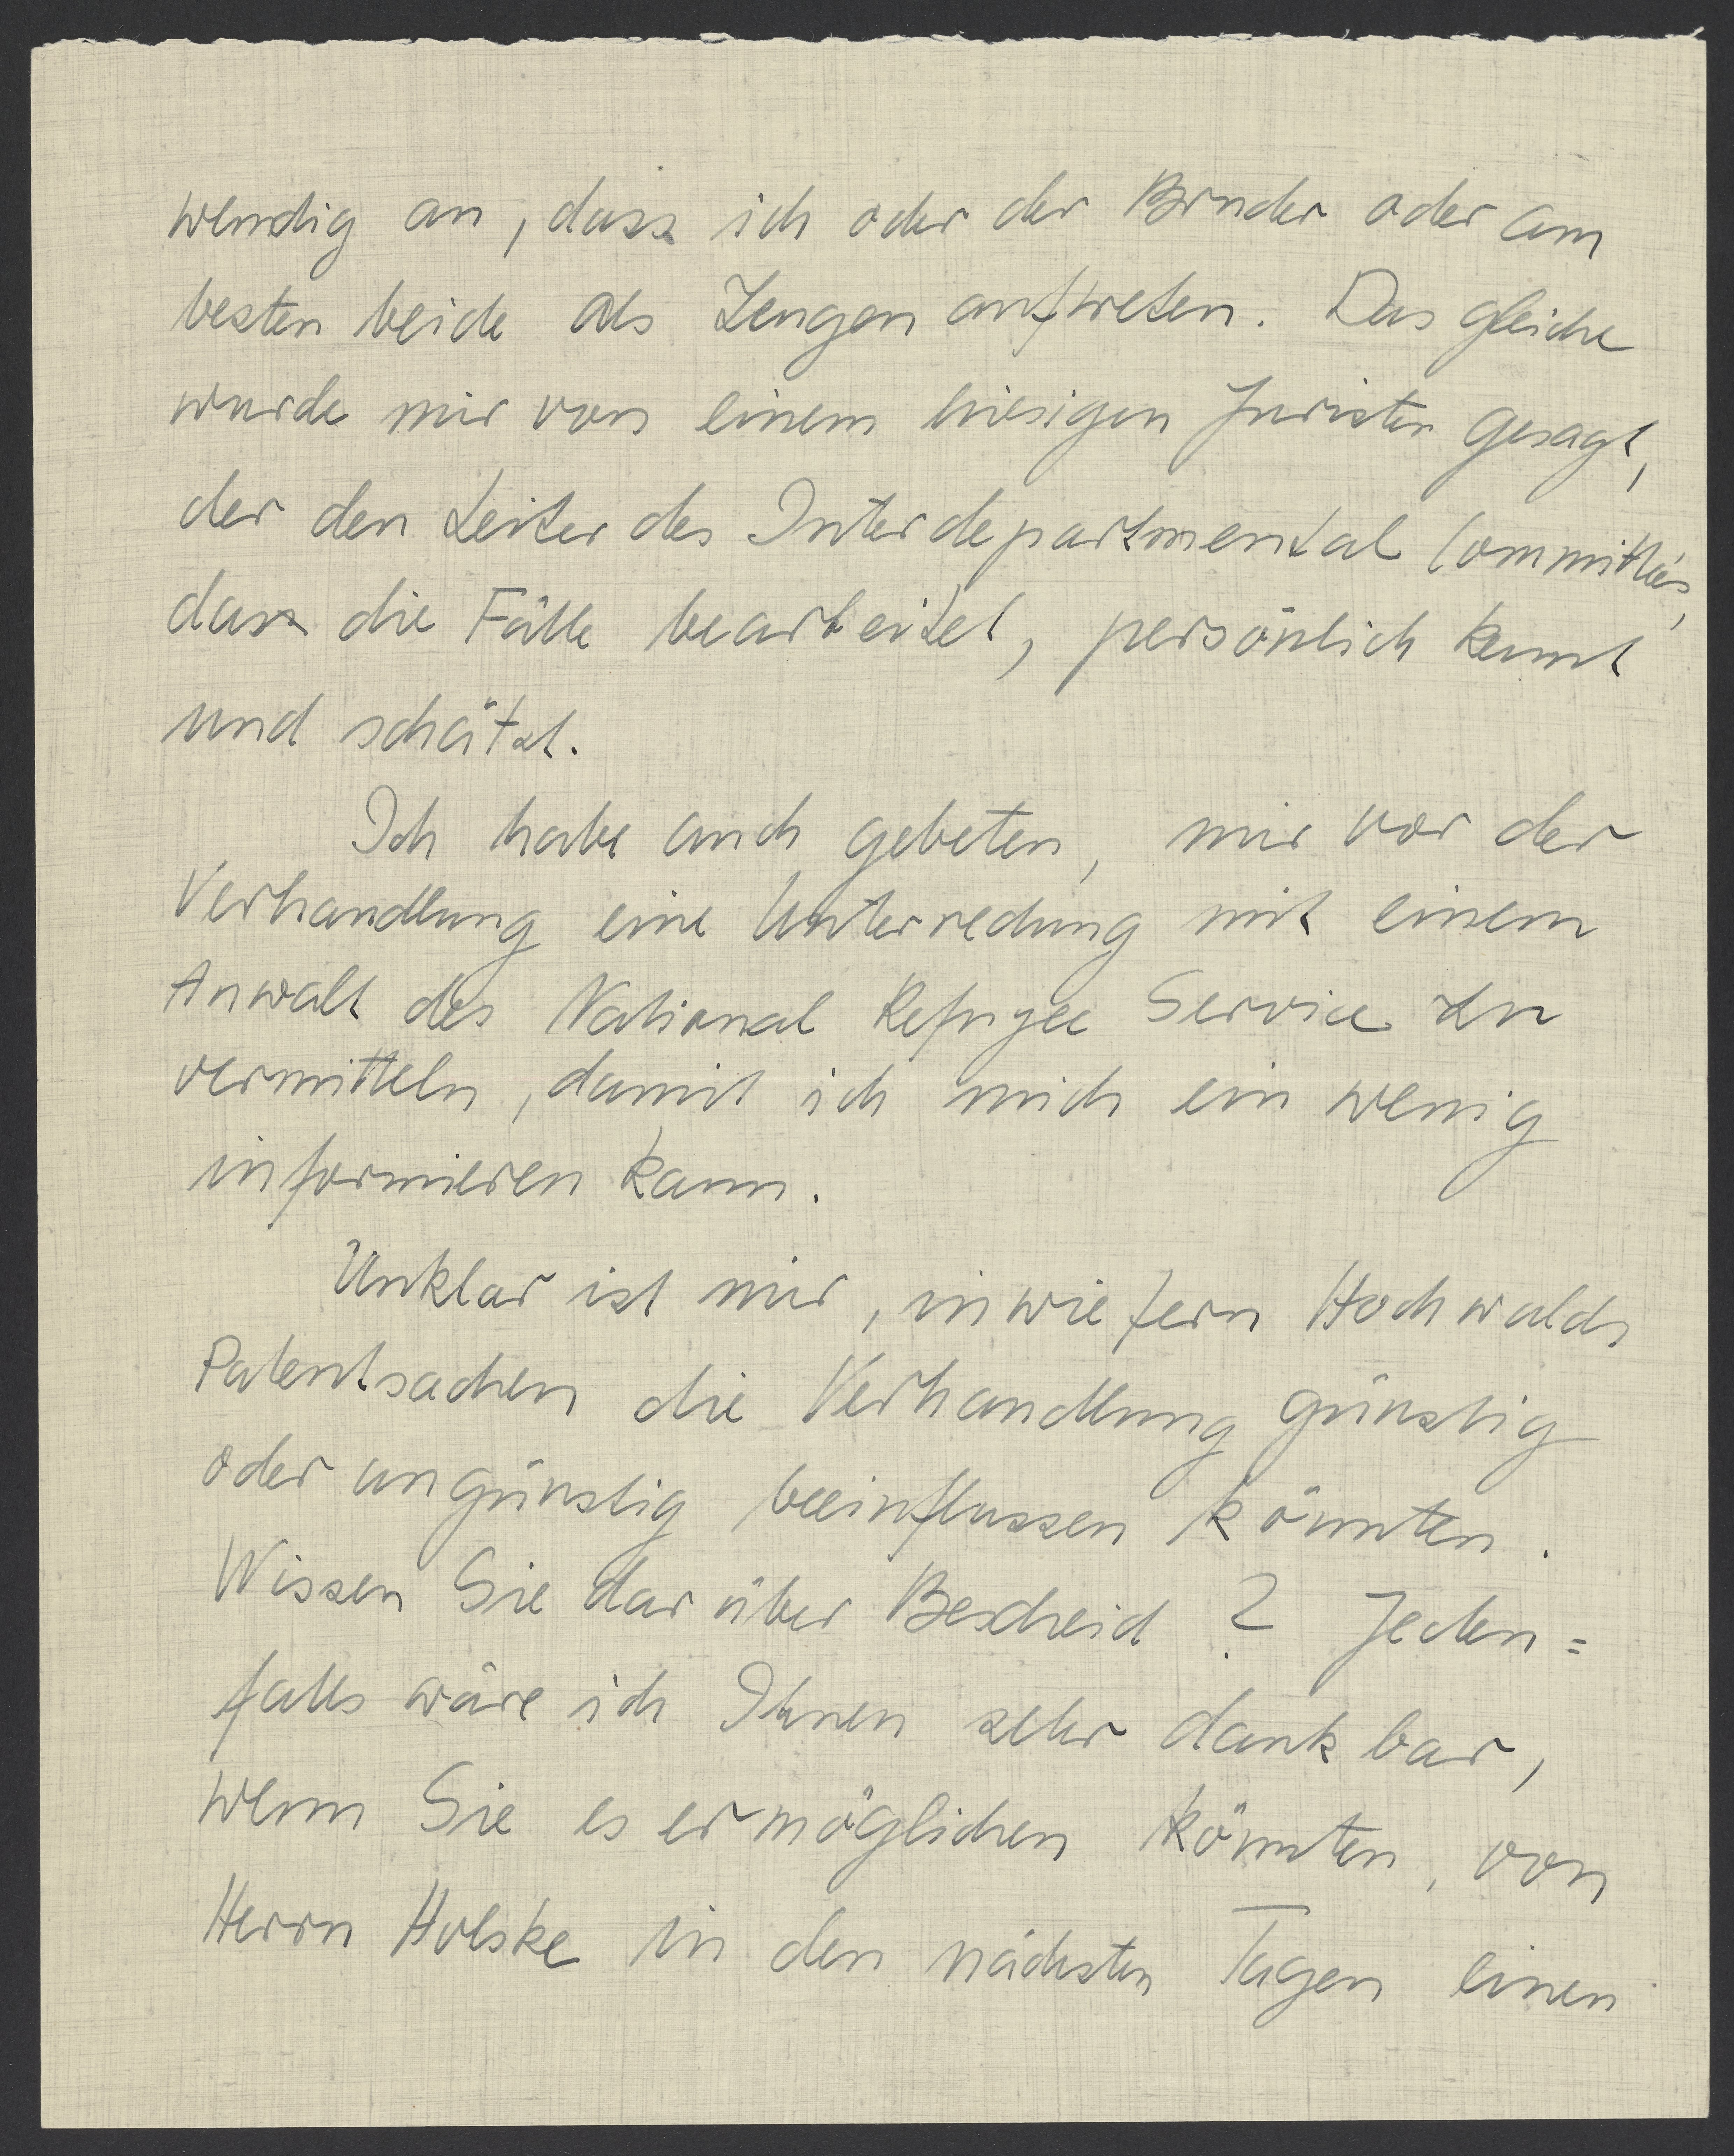 wendig an, dass ich oder der Bruder oder am
besten beide als Zeugen auftreten. Das gleiche
wurde mir von einem hiesigen Juristen gesagt,
der den Leiter des Interdepartmental Committées,
dass die Fälle bearbeitet, persönlich kennt
und schätzt.
Ich habe auch gebeten, mir vor der
Verhandlung eine Unterredung mit einem
Anwalt des National Refugee Service zu
vermitteln, damit ich mich ein wenig
informieren kann.
Unklar ist mir, inwiefern Hochwalds
Patentsachen die Verhandlung günstig
oder ungünstig beeinflussen könnten.
Wissen Sie darüber Bescheid? Jeden=
falls wäre ich Ihnen sehr dankbar,
wenn Sie es ermöglichen könnten, von
Herrn Holske in den nächsten Tagen einen